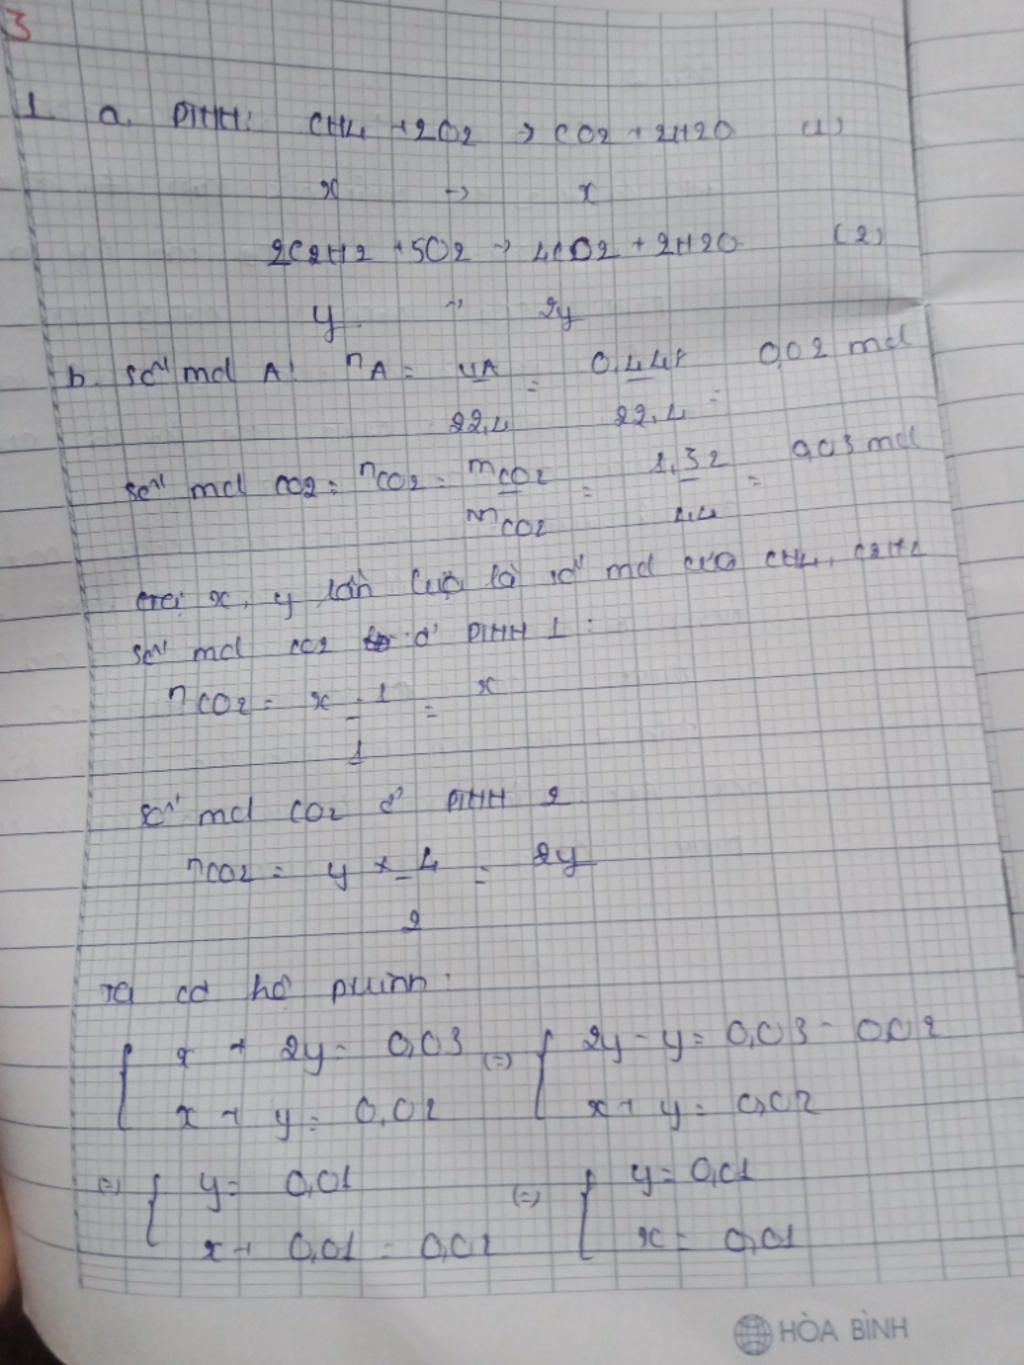 3
1 a. PTHH: CH4 + 2O2 → CO2 + 2H2O (1)
x → x
2C2H2 + 5O2 → 4CO2 + 2H2O (2)
y → 2y
b. số mol A: nA = VA / 22,4 = 0,448 / 22,4 = 0,02 mol
số mol CO2 = nCO2 = mCO2 / MCO2 = 1,32 / 44 = 0,03 mol
Gọi x, y lần lượt là số mol của CH4, C2H2
số mol CO2 ở PTHH 1:
nCO2 = x · 1 / 1 = x
số mol CO2 ở PTHH 2
nCO2 = y × 4 / 2 = 2y
Ta có hệ phương trình:
{ x + 2y = 0,03 (=) { 2y - y = 0,03 - 0,02
x + y = 0,02 x + y = 0,02
(=) { y = 0,01 (=) { y = 0,01
x + 0,01 = 0,02 x = 0,01
HÒA BÌNH